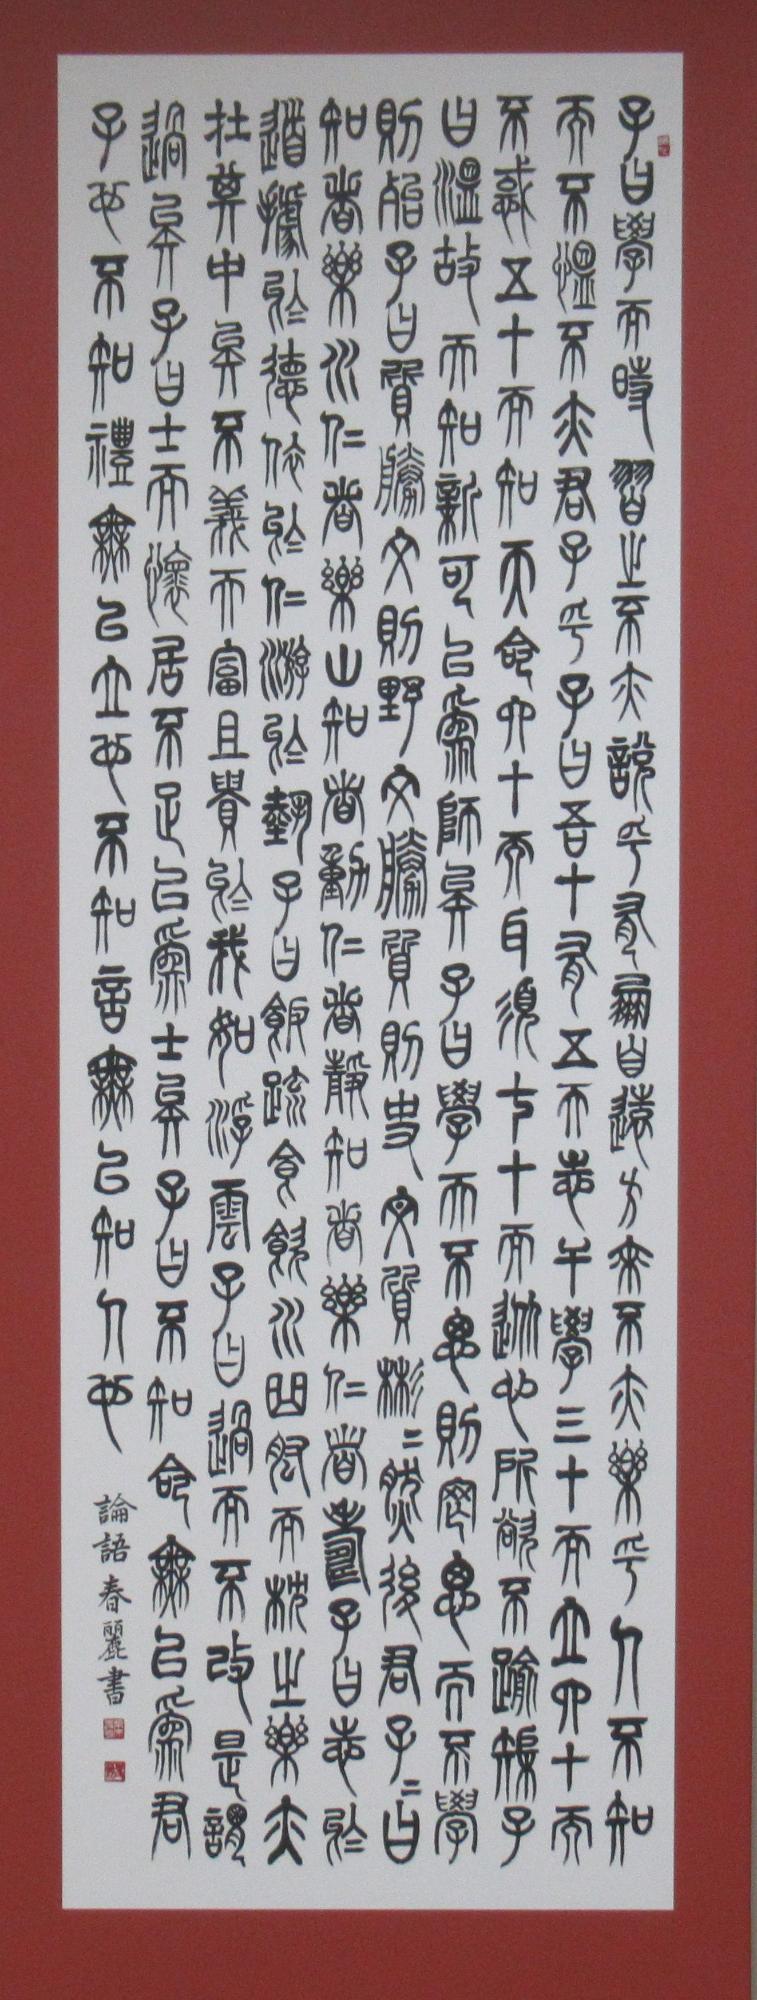 子曰學而時習之不亦說乎有朋自遠方來不亦樂乎人不知
而不慍不亦君子乎子曰吾十有五而志于學三十而立四十而
不惑五十而知天命六十而耳順七十而從心所欲不踰矩子
曰溫故而知新可以為師矣子曰學而不思則罔思而不學
則殆子曰質勝文則野文勝質則史文質彬〻然後君子〻曰
知者樂水仁者樂山知者動仁者靜知者樂仁者壽子曰志於
道據於德依於仁游於藝子曰飯疏食飲水曲肱而枕之樂亦
在其中矣不義而富且貴於我如浮雲子曰過而不改是謂
過矣子曰士而懷居不足以為士矣子曰不知命無以為君
子也不知禮無以立也不知言無以知人也
論語春麗書